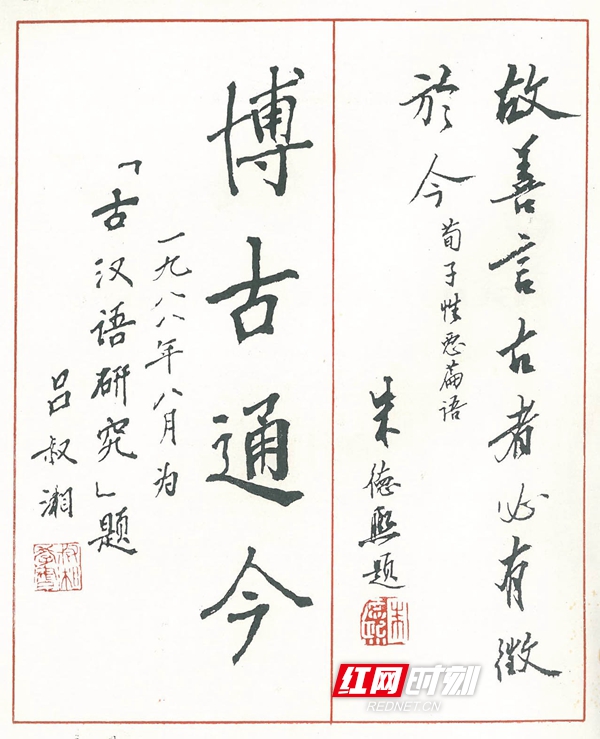 故善言古者必有徵
於今
荀子性恶篇语
朱德熙题
博古通今
一九八八年八月为
「古汉语研究」题
吕叔湘
红网时刻
REDNET.CN